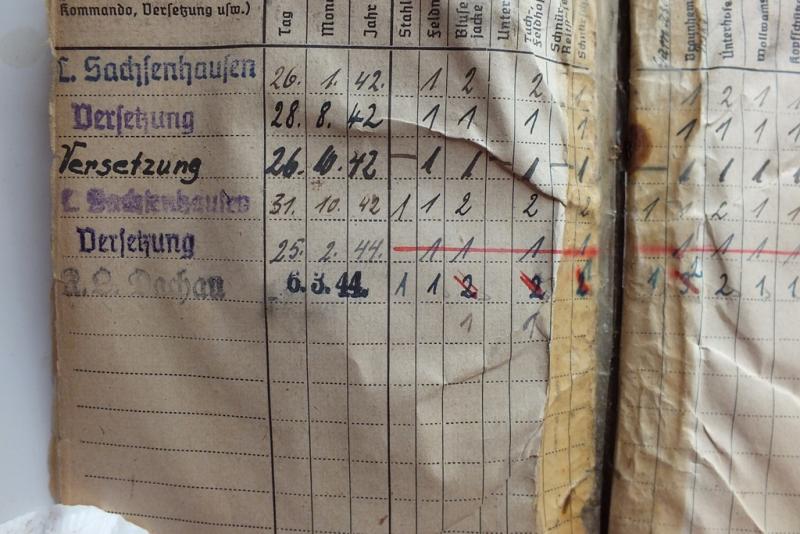 Kommando, Versetzung usw.) Tag Mona Jahr Stahl Feldm Bluse jacke Unter Tuch- Feldhos Schnür Braunhem Unterhose Wollwams Kopfschütz
L. Sachsenhausen 26. 1. 42. 1 2 2 1 1 2 1 1
Versetzung 28. 8. 42 1 1 1 1 1 1 1 1
Versetzung 26. 10. 42 – 1 1 1 – 1 – 1 1 1 1
L. Sachsenhausen 31. 10. 42 1 1 2 2 2 1 1 2 1 1
Versetzung 25. 2. 44. 1 1 1 1 1 1 1 1
K. L. Dachau 6. 3. 44. 1 1 2 2 1 2 2 1 1
1 1